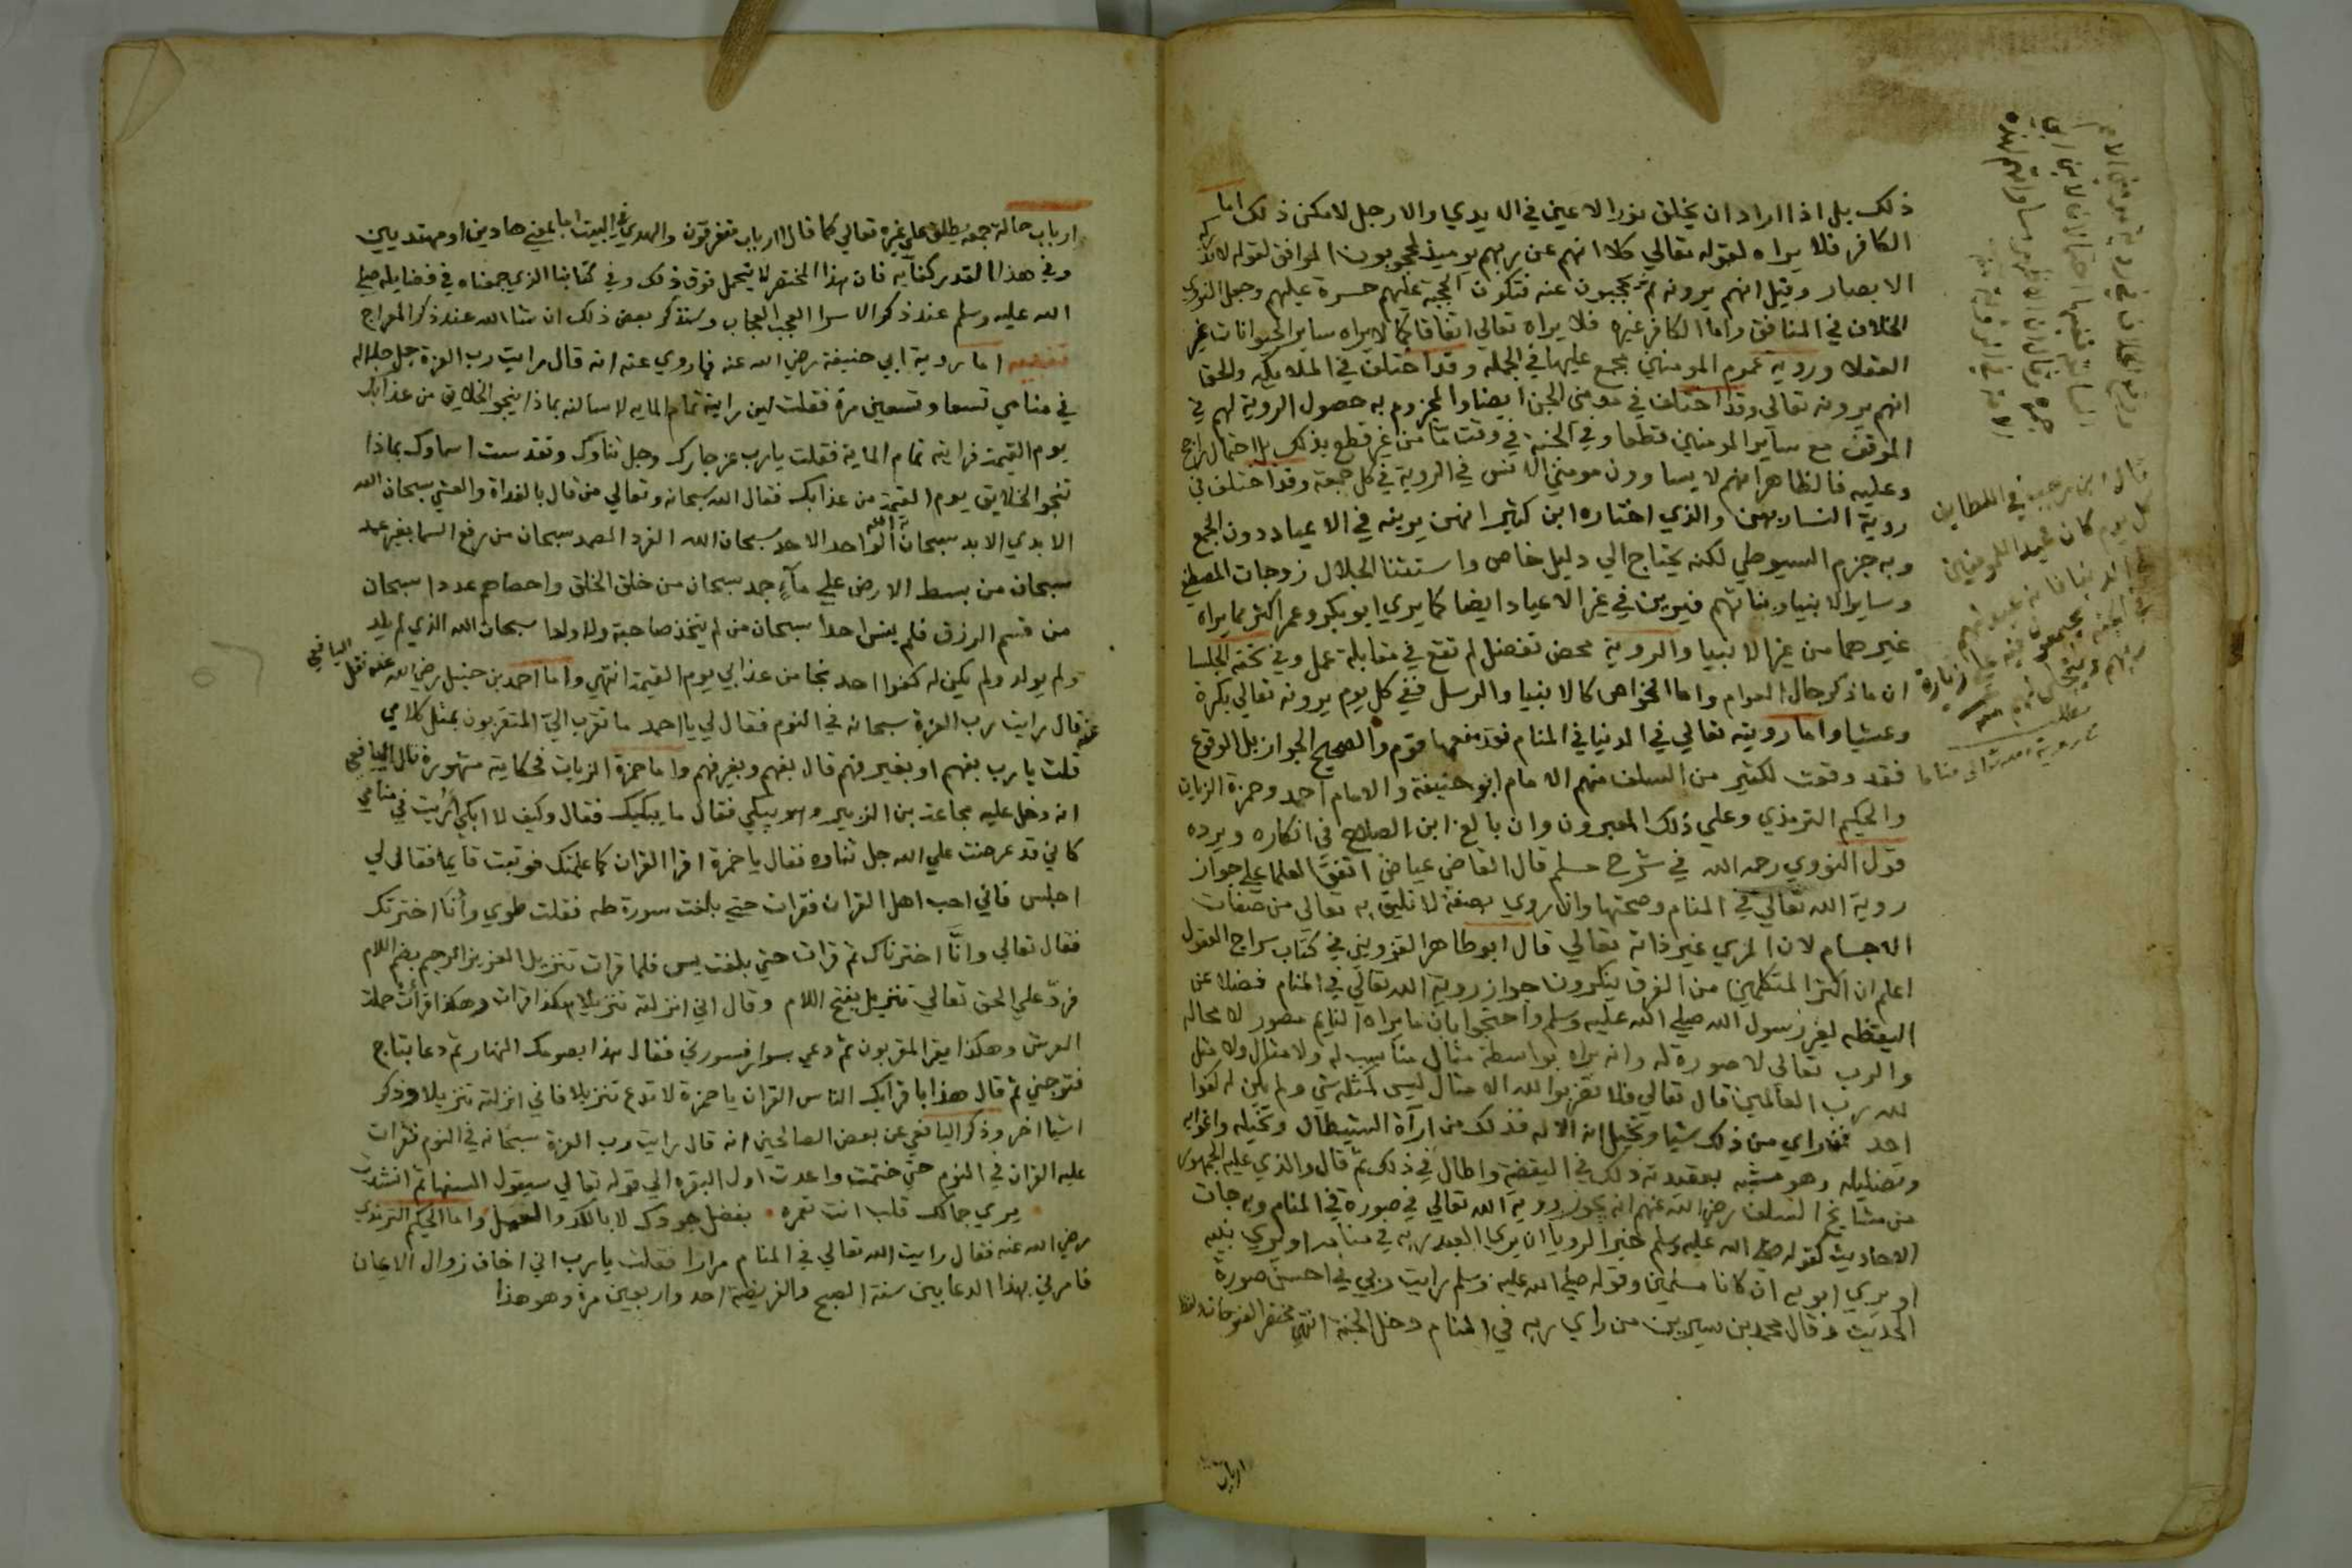 ذلك بل اذا اراد ان يخلق نور الاعين في الايدي والارجل لامكن ذلك اما
الكافر فلا يراه لقوله تعالي كلا انهم عن ربهم يوميذ لمحجوبون الموافق لقوله لا تدركه
الابصار وقيل انهم يرونه ثم يحجبون عنه فتكون الحجبة عليهم حسرة عليهم وجعل النووي
الخلاف في المنافق واما الكافر غيره فلا يراه تعالي اتفاقا كما لا يراه ساير الحيوانات غير
العقلا وروية عموم المومنين مجمع عليها في الجملة وقد اختلف في الملايكة والحق
انهم يرونه تعالي وقد اختلف في مومني الجن ايضا والمجزوم به حصول الروية لهم في
الموقف مع ساير المومنين قطعا وفي الجنة في وقت ما من غير قطع بذلك بل احتمال راجح
وعليه فالظاهر انهم لا يساوون مومني الانس في الروية في كل جمعة وقد اختلف في
روية النسا ربهن والذي اختاره ابن كثير انهن يرينه في الاعياد دون الجمع
وبه جزم السيوطي لكنه يحتاج الي دليل خاص واستثنا الجلال زوجات المصطفي
وساير الانبيا وبناتهم فيرين في غير الاعياد ايضا كما يري ابوبكر وعمر اكثر مما يراه
غيرهما من غير الانبيا والروية محض تفضل لم تقع في مقابلة عمل وفي تحفة الجلسا
ان ما ذكر حال العوام واما الخواص كالانبيا والرسل ففي كل يوم يرونه تعالي بكرة
وعشيا واما رويته تعالي في الدنيا في المنام فقد منعها قوم والصحيح الجواز بل الوقوع
فقد وقعت لكثير من السلف منهم الامام ابو حنيفة والامام احمد وحمزة الزيات
والحكيم الترمذي وعلي ذلك المعبرون وان بالغ ابن الصلاح في انكاره ويرده
قول النووي رحمه الله في شرح مسلم قال القاضي عياض اتفق العلما علي جواز
روية الله تعالي في المنام وصحتها وان روي بصفة لا تليق به تعالي من صفات
الاجسام لان المري غير ذاته تعالي قال ابو طاهر القزويني في كتاب سراج العقول
اعلم ان اكثر المتكلمين من الفرق ينكرون جواز روية الله تعالي في المنام فضلا عن
اليقظه لغير رسول الله صلي الله عليه وسلم واحتجوا بان ما يراه النايم مصور لا محاله
والرب تعالي لا صورة له وانه يراه بواسطة مثال مناسب له ولا مثال ولا مثل
لله رب العالمين قال تعالي فلا تضربوا لله الامثال ليس كمثله شي ولم يكن له كفوا
احد فمن راي من ذلك شيا وتخيل انه الاله فذلك من اراة الشيطان وتخيله واغوايه
وتضليله وهو مشبه بعقيدته ذلك في اليقضة واطال في ذلك ثم قال والذي عليه الجمهور
من مشايخ السلف رضي الله عنهم انه يجوز روية الله تعالي في صورة في المنام وبه جات
الاحاديث كقوله صلي الله عليه وسلم خير الرويا ان يري العبد ربه في منامه او يري نبيه
او يري ابويه ان كانا مسلمين وقوله صلي الله عليه وسلم رايت ربي في احسن صورة
الحديث وقال محمد بن سيرين من راي ربه في المنام دخل الجنة انتهي مختصر الفتوحات
ارباب
قال ابن رجب في اللطايف
كل يوم كان عيد للمومنين
ارباب حالة جمعه يطلق علي غيره تعالي كما قال اارباب متفرقون والهدي في البيت اما بمعني هادين او مهتديين
وفي هذا القدر كفايه فان هذا المختصر لا يتحمل فوق ذلك وفي كتابنا الذي جمعناه في فضايله صلي
الله عليه وسلم عند ذكر الاسرا العجب العجاب وسنذكر بعض ذلك ان شا الله عند ذكر المعراج
تنبيه اما روية ابي حنيفة رضي الله عنه فما روي عنه انه قال رايت رب العزة جل جلاله
في منامي تسعا وتسعين مرة فقلت لين رايته تمام المايه لاسالنه بماذا ينجو الخلايق من عذابك
يوم القيمة فرايته تمام الماية فقلت يارب عز جارك وجل ثناوك وتقدست اسماوك بماذا
تنجو الخلايق يوم القيمة من عذابك فقال الله سبحانه وتعالي من قال بالغداة والعشي سبحان الله
الابدي الابد سبحان الله الواحد الاحد سبحان الله الفرد الصمد سبحان من رفع السما بغير عمد
سبحان من بسط الارض علي مآء جمد سبحان من خلق الخلق واحصاهم عددا سبحان
من قسم الرزق فلم ينس احدا سبحان من لم يتخذ صاحبة ولا ولدا سبحان الله الذي لم يلد
ولم يولد ولم يكن له كفوا احد نجا من عذابي يوم القيمة انتهي واما احمد بن حنبل رضي الله عنه فقل اليافعي
عنه قال رايت رب العزة سبحانه في النوم فقال لي يا احمد ما تقرب اليّ المتقربون بمثل كلامي
قلت يا رب بفهم او بغير فهم قال بفهم وبغير فهم واما حمزة الزيات فحكايته مشهورة قال اليافعي
انه دخل عليه مجاعة بن الزبير وهو يبكي فقال ما يبكيك فقال وكيف لا ابكي أرُيت في منامي
كاني قد عرضت علي الله جل ثناوه فقال يا حمزة اقرا القران كما علمتك فوثبت قايما فقال لي
اجلس فاني احب اهل القران فقرات حتي بلغت سورة طه فقلت طوي وأنَا اخترتك
فقال تعالي وانَّا اخترناك ثم قرات حتي بلغت يس فلما قرات تنزيل العزيز الرحيم بضم اللام
فردّ علي الحق تعالي تنزيل بفتح اللام وقال اني انزلته تنزيلا هكذا قرات وهكذا اقرأت حملة
العرش وهكذا يقرا المقربون ثم دعي بسوار فسورني فقال هذا بصومك النهار ثم دعا بتاج
فتوجني ثم قال هذا باقرايك الناس القران يا حمزة لا تدع تنزيلا فاني انزلته تنزيلا وذكر
اشيا اخر وذكر اليافعي عن بعض الصالحين انه قال رايت رب العزة سبحانه في النوم فقرات
عليه القران في النوم حتي ختمت واعدت اول البقره الي قوله تعالي سيقول السفها ثم انشدت
يري جمالك قلب انت تعمره بفضل جودك لا بالكد والعمل واما الحكيم الترمذي
رضي الله عنه فقال رايت الله تعالي في المنام مرارا فقلت يا رب اني اخاف زوال الايمان
فامرني بهذا الدعا بين سنة الصبح والفريضة احد واربعين مرة وهو هذا